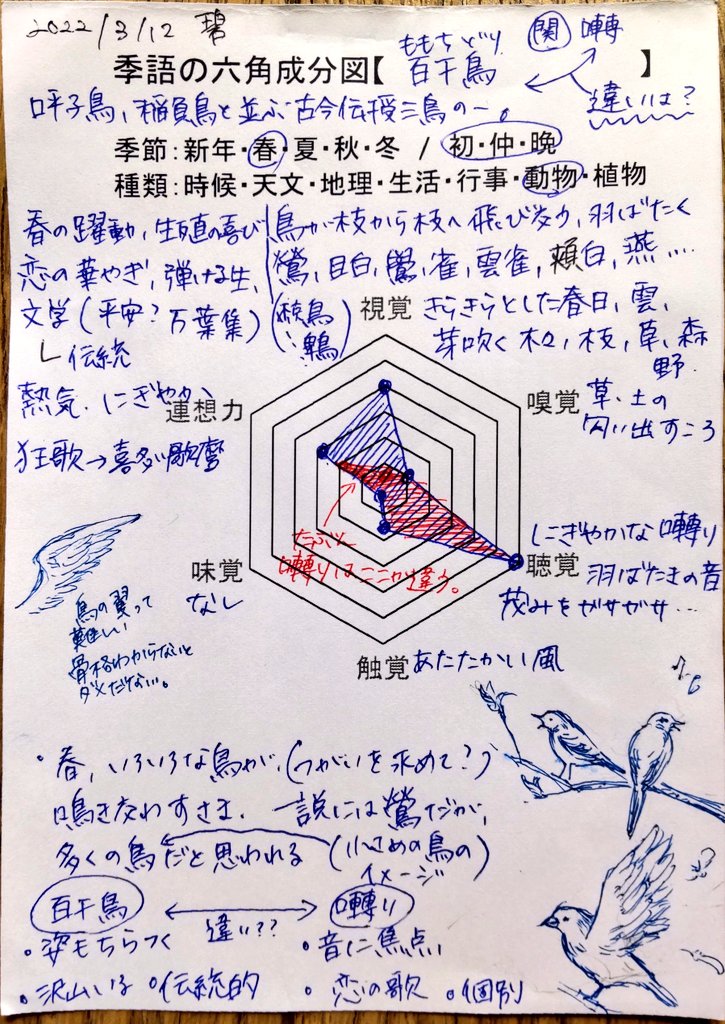 2022/3/12 碧
ももちどり 関 囀
季語の六角成分図【 百千鳥 】
呼子鳥、稲負鳥と並ぶ古今伝授三鳥の一。 違いは?
季節:新年・春・夏・秋・冬 / 初・仲・晩
種類:時候・天文・地理・生活・行事・動物・植物
春の躍動、生殖の喜び
恋の華やぎ、弾ける生、
文学(平安?万葉集)
伝統
熱気、にぎやか
狂歌→喜多川歌麿
鳥が枝から枝へ飛び交う、羽ばたく
鶯、目白、雀、雲雀、頬白、燕…
視覚 きらきらとした春日、雲、
芽吹く木々、枝、草、森
野
連想力
嗅覚 草、土の
匂い出すころ
聴覚 にぎやかな囀り
羽ばたきの音
茂みをガサガサ…
たぶん
囀りはここが違う。
味覚
なし
触覚 あたたかい風
鳥の翼って
難しい
骨格わからないと
ダメだなぃ。
・春、いろいろな鳥が、(つがいを求めて?)
鳴き交わすさま。一説には鶯だが、
多くの鳥だと思われる (小さめの鳥の)
イメージ
百千鳥 囀り
違い??
・姿もちらつく ・音に焦点
・沢山いる ・伝統的 ・恋の歌 ・個別